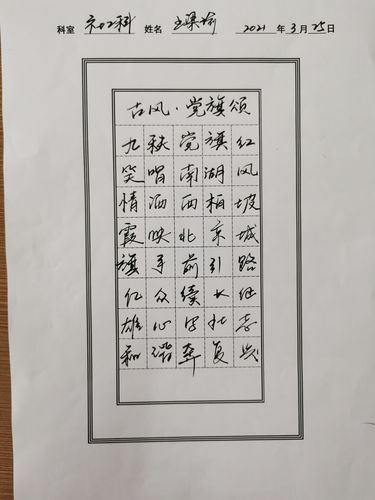 科室 科 姓名 2021 年 3 月 25 日
古风·党旗颂
九秩党旗红
笑唱南湖风
情洒西柏坡
霞映北京城
旗手前引路
亿众续长征
雄心 壮志
和谐奔复兴